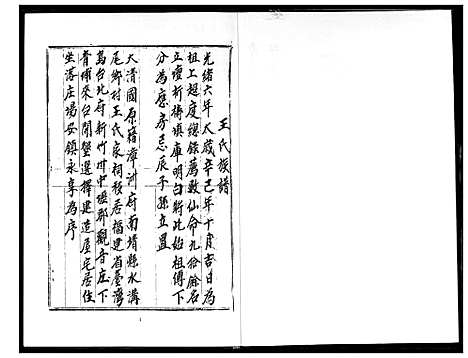 王氏族譜
光緒六年太歲辛己年十月吉日為
祖上超度總錄萬數仙命九拾餘名
立壇祈禱填庫明白將此始祖傳下
分為應房忌辰子孫立置
大清國原籍漳洲府南靖縣水溝
尾鄉村王氏家祠移居福建省臺灣
島台北府新竹州中壢郡觀音庄下
青埔來台開墾選擇建造屋宅居住
坐落庄場安鎮永享為序